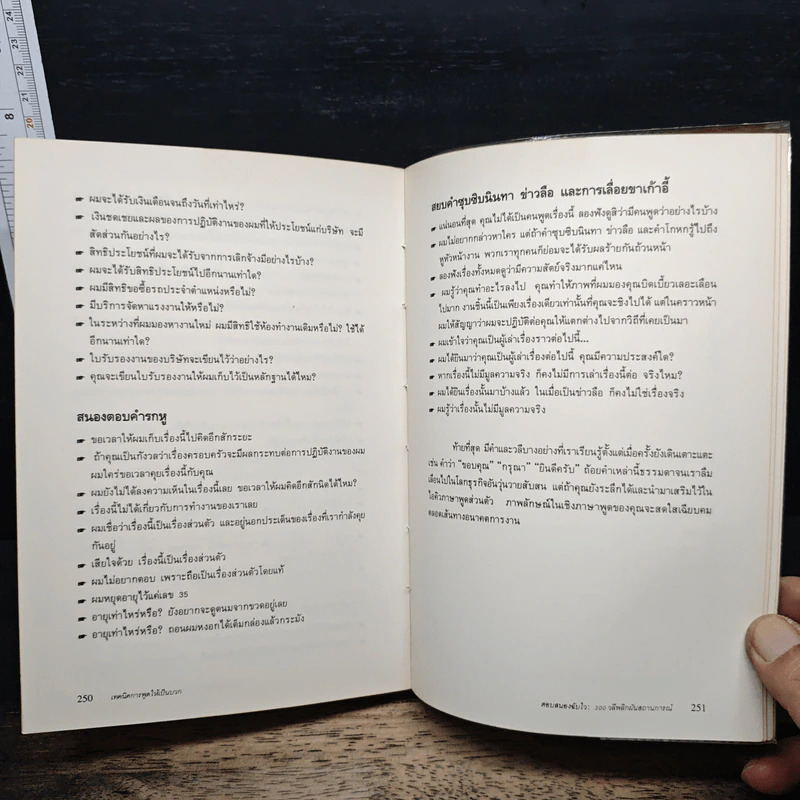 24
23
22
21
20
8
☛ ผมจะได้รับเงินเดือนจนถึงวันที่เท่าไหร่?
☛ เงินชดเชยและผลของการปฏิบัติงานของผมที่ให้ประโยชน์แก่บริษัท จะมี
สัดส่วนกันอย่างไร?
☛ สิทธิประโยชน์ที่ผมจะได้รับจากการเลิกจ้างมีอย่างไรบ้าง?
☛ ผมจะได้รับสิทธิประโยชน์ไปอีกนานเท่าใด?
☛ ผมมีสิทธิขอซื้อรถประจำตำแหน่งหรือไม่?
☛ มีบริการจัดหาแรงงานให้หรือไม่?
☛ ในระหว่างที่ผมมองหางานใหม่ ผมมีสิทธิใช้ห้องทำงานเดิมหรือไม่? ใช้ได้
อีกนานเท่าใด?
☛ ใบรับรองงานของบริษัทจะเขียนไว้ว่าอย่างไร?
☛ คุณจะเขียนใบรับรองงานให้ผมเก็บไว้เป็นหลักฐานได้ไหม?
สนองตอบคำรกหู
☛ ขอเวลาให้ผมเก็บเรื่องนี้ไปคิดอีกสักระยะ
☛ ถ้าคุณเป็นกังวลว่าเรื่องครอบครัวจะมีผลกระทบต่อการปฏิบัติงานของผม
ผมใคร่ขอเวลาคุยเรื่องนี้กับคุณ
☛ ผมยังไม่ได้ลงความเห็นในเรื่องนี้เลย ขอเวลาให้ผมคิดอีกสักนิดได้ไหม?
☛ เรื่องนี้ไม่ได้เกี่ยวกับการทำงานของเราเลย
☛ ผมเชื่อว่าเรื่องนี้เป็นเรื่องส่วนตัว และอยู่นอกประเด็นของเรื่องที่เรากำลังคุย
กันอยู่
☛ เสียใจด้วย เรื่องนี้เป็นเรื่องส่วนตัว
☛ ผมไม่อยากตอบ เพราะถือเป็นเรื่องส่วนตัวโดยแท้
☛ ผมหยุดอายุไว้แค่เลข 35
☛ อายุเท่าไหร่หรือ? ยังอยากจะดูดนมจากขวดอยู่เลย
☛ อายุเท่าไหร่หรือ? ถอนผมหงอกได้เต็มกล่องแล้วกระมัง
250 เทคนิคการพูดให้เป็นบวก
สยบคำซุบซิบนินทา ข่าวลือ และการเลื่อยขาเก้าอี้
☛ แน่นอนที่สุด คุณไม่ได้เป็นคนพูดเรื่องนี้ ลองฟังดูสิว่ามีคนพูดว่าอย่างไรบ้าง
☛ ผมไม่อยากกล่าวหาใคร แต่ถ้าคำซุบซิบนินทา ข่าวลือ และคำโกหกรู้ไปถึง
หูหัวหน้างาน พวกเราทุกคนก็ย่อมจะได้รับผลร้ายกันถ้วนหน้า
☛ ลองฟังเรื่องทั้งหมดดูว่ามีความสัตย์จริงมากแค่ไหน
☛ ผมรู้ว่าคุณทำอะไรลงไป คุณทำให้ภาพที่ผมมองคุณบิดเบี้ยวเลอะเลือน
ไปมาก งานชิ้นนี้เป็นเพียงเรื่องเดียวเท่านั้นที่คุณจะชิงไปได้ แต่ในคราวหน้า
ผมให้สัญญาว่าจะปฏิบัติต่อคุณให้แตกต่างไปจากวิถีที่เคยเป็นมา
☛ ผมเข้าใจว่าคุณเป็นผู้เล่าเรื่องราวต่อไปนี้...
☛ ผมได้ยินมาว่าคุณเป็นผู้เล่าเรื่องต่อไปนี้ คุณมีความประสงค์ใด?
☛ หากเรื่องนี้ไม่มีมูลความจริง ก็คงไม่มีการเล่าเรื่องนี้ต่อ จริงไหม?
☛ ผมได้ยินเรื่องนั้นมาบ้างแล้ว ในเมื่อเป็นข่าวลือ ก็คงไม่ใช่เรื่องจริง
☛ ผมรู้ว่าเรื่องนั้นไม่มีมูลความจริง
ท้ายที่สุด มีคำและวลีบางอย่างที่เราเรียนรู้ตั้งแต่เมื่อครั้งยังเดินเตาะแตะ
เช่น คำว่า "ขอบคุณ" "กรุณา" "ยินดีครับ" ถ้อยคำเหล่านี้ธรรมดาจนเราลืม
เลือนไปในโลกธุรกิจอันวุ่นวายสับสน แต่ถ้าคุณยังระลึกได้และนำมาเสริมไว้ใน
ไอคิวภาษาพูดส่วนตัว ภาพลักษณ์ในเชิงภาษาพูดของคุณจะสดใสเฉียบคม
ตลอดเส้นทางอนาคตการงาน
ตอบสนองฉับไว: 300 วลีพลิกผันสถานการณ์ 251